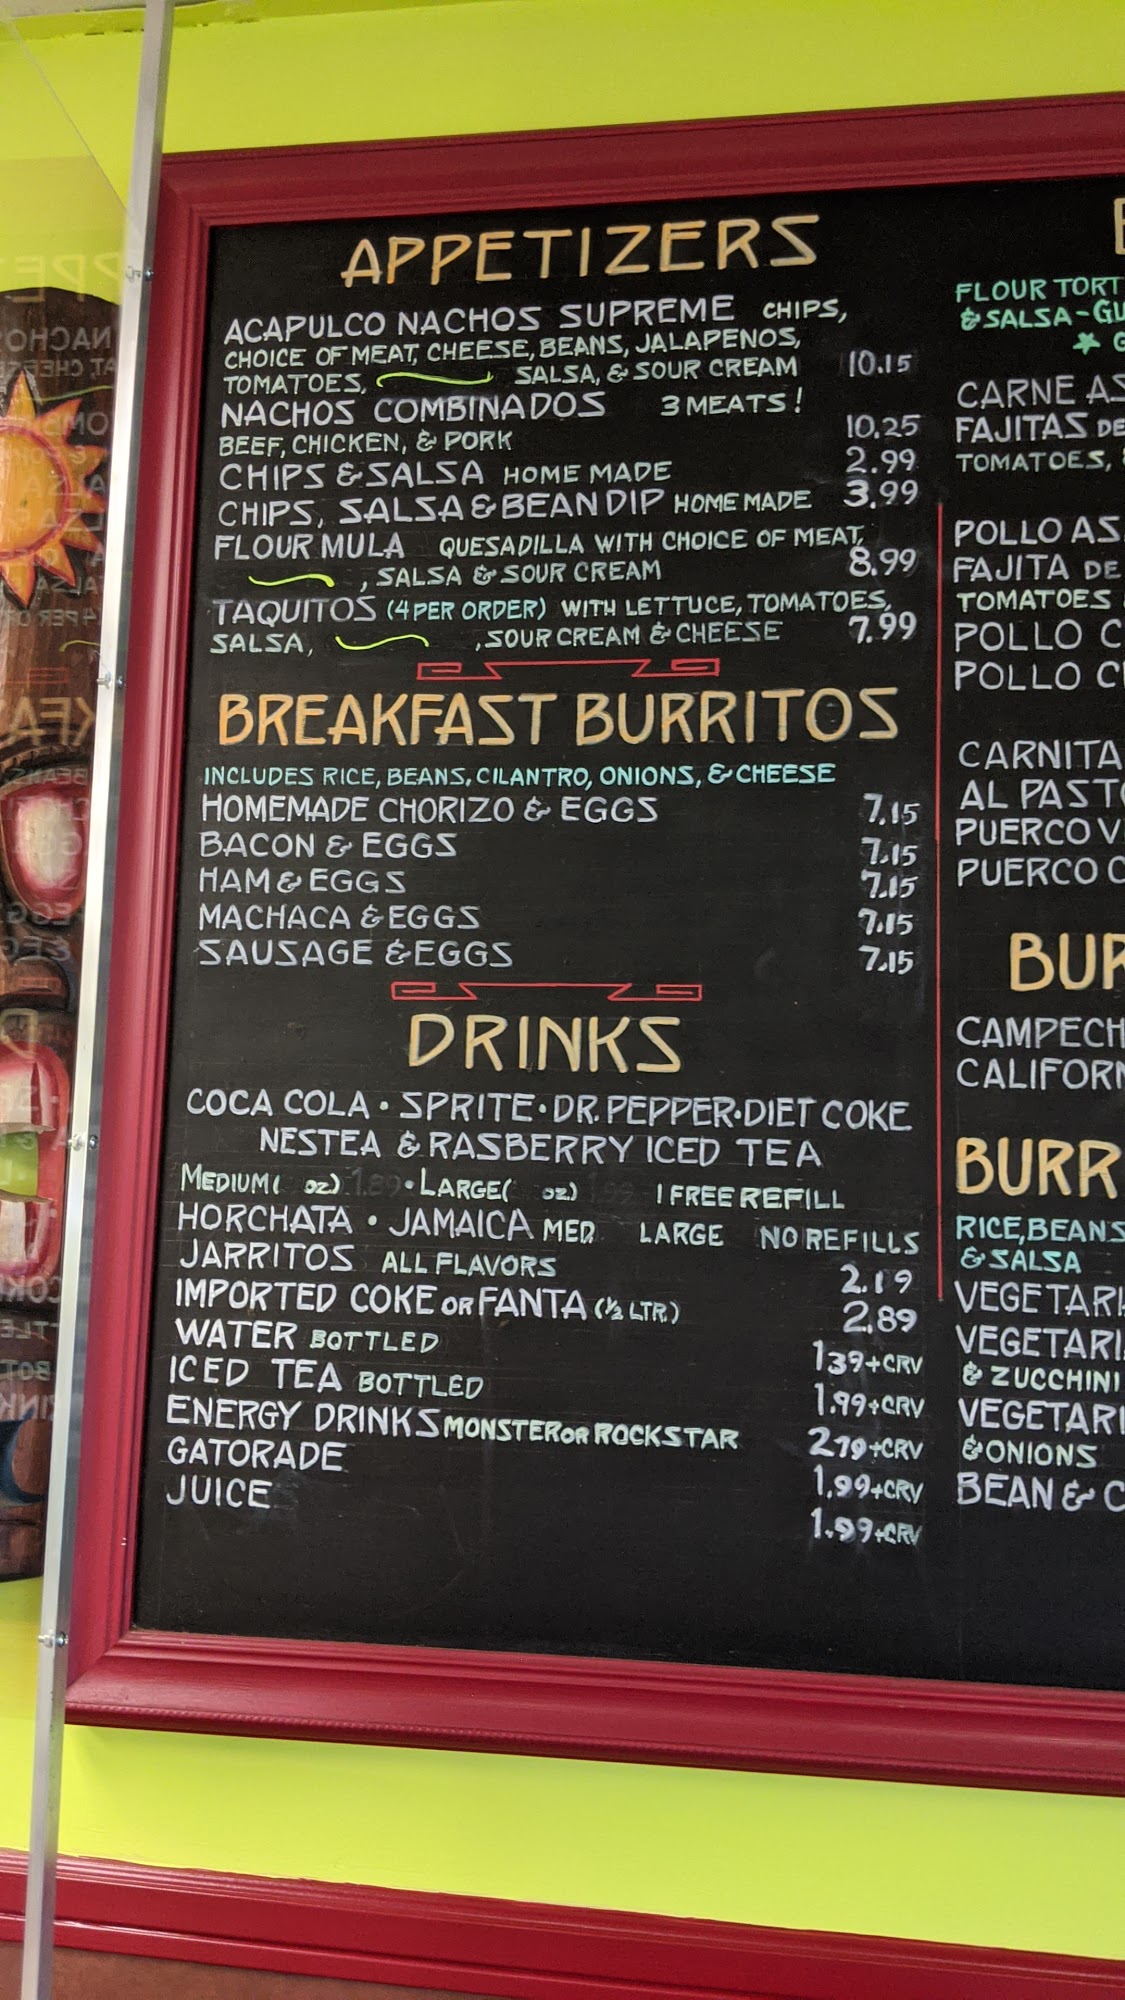 APPETIZERS
ACAPULCO NACHOS SUPREME CHIPS,
CHOICE OF MEAT, CHEESE, BEANS, JALAPENOS,
TOMATOES, SALSA, & SOUR CREAM 10.15
NACHOS COMBINADOS 3 MEATS!
BEEF, CHICKEN, & PORK 10.25
CHIPS & SALSA HOME MADE 2.99
CHIPS, SALSA & BEAN DIP HOME MADE 3.99
FLOUR MULA QUESADILLA WITH CHOICE OF MEAT,
, SALSA & SOUR CREAM 8.99
TAQUITOS (4 PER ORDER) WITH LETTUCE, TOMATOES,
SALSA, , SOUR CREAM & CHEESE 7.99
BREAKFAST BURRITOS
INCLUDES RICE, BEANS, CILANTRO, ONIONS, & CHEESE
HOMEMADE CHORIZO & EGGS 7.15
BACON & EGGS 7.15
HAM & EGGS 7.15
MACHACA & EGGS 7.15
SAUSAGE & EGGS 7.15
DRINKS
COCA COLA • SPRITE • DR. PEPPER • DIET COKE
NESTEA & RASBERRY ICED TEA
MEDIUM ( OZ.) 1.89 • LARGE ( OZ.) 1.99 1 FREE REFILL
HORCHATA • JAMAICA MED LARGE NO REFILLS
JARRITOS ALL FLAVORS 2.19
IMPORTED COKE OR FANTA (½ LTR.) 2.89
WATER BOTTLED 139+CRV
ICED TEA BOTTLED 1.99+CRV
ENERGY DRINKS MONSTER OR ROCKSTAR 279+CRV
GATORADE 1.99+CRV
JUICE 1.99+CRV
FLOUR TORT
& SALSA - GU
CARNE AS
FAJITAS DE
TOMATOES,
POLLO AS
FAJITA DE
TOMATOES
POLLO C
POLLO C
CARNITA
AL PASTO
PUERCO V
PUERCO C
BUR
CAMPECH
CALIFORN
BURR
RICE, BEANS
& SALSA
VEGETARI
VEGETARI
& ZUCCHINI
VEGETARI
& ONIONS
BEAN & C